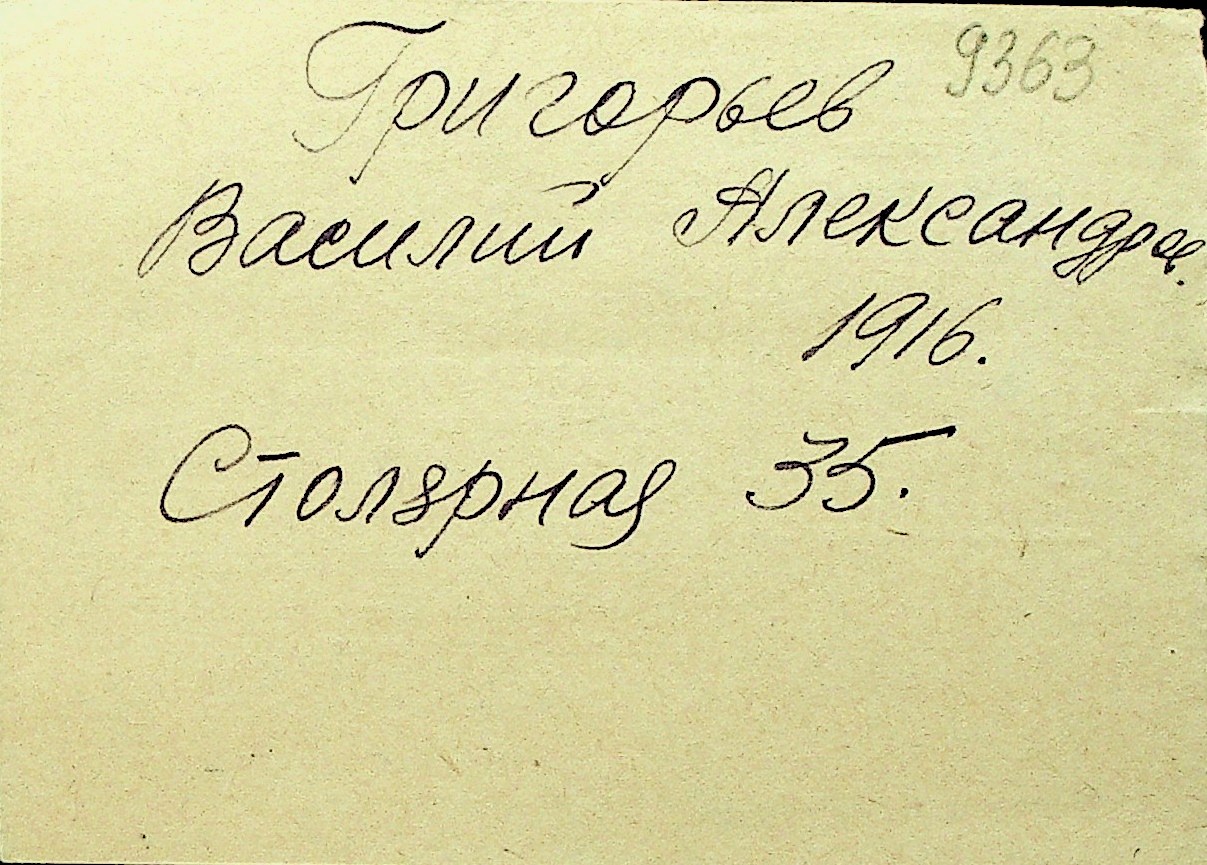 Григорьев 9363
Василий Александров.
1916.
Столярная 35.